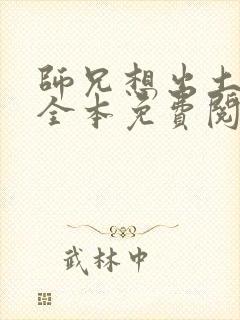 師兄想出土
全本免費閱
武林中